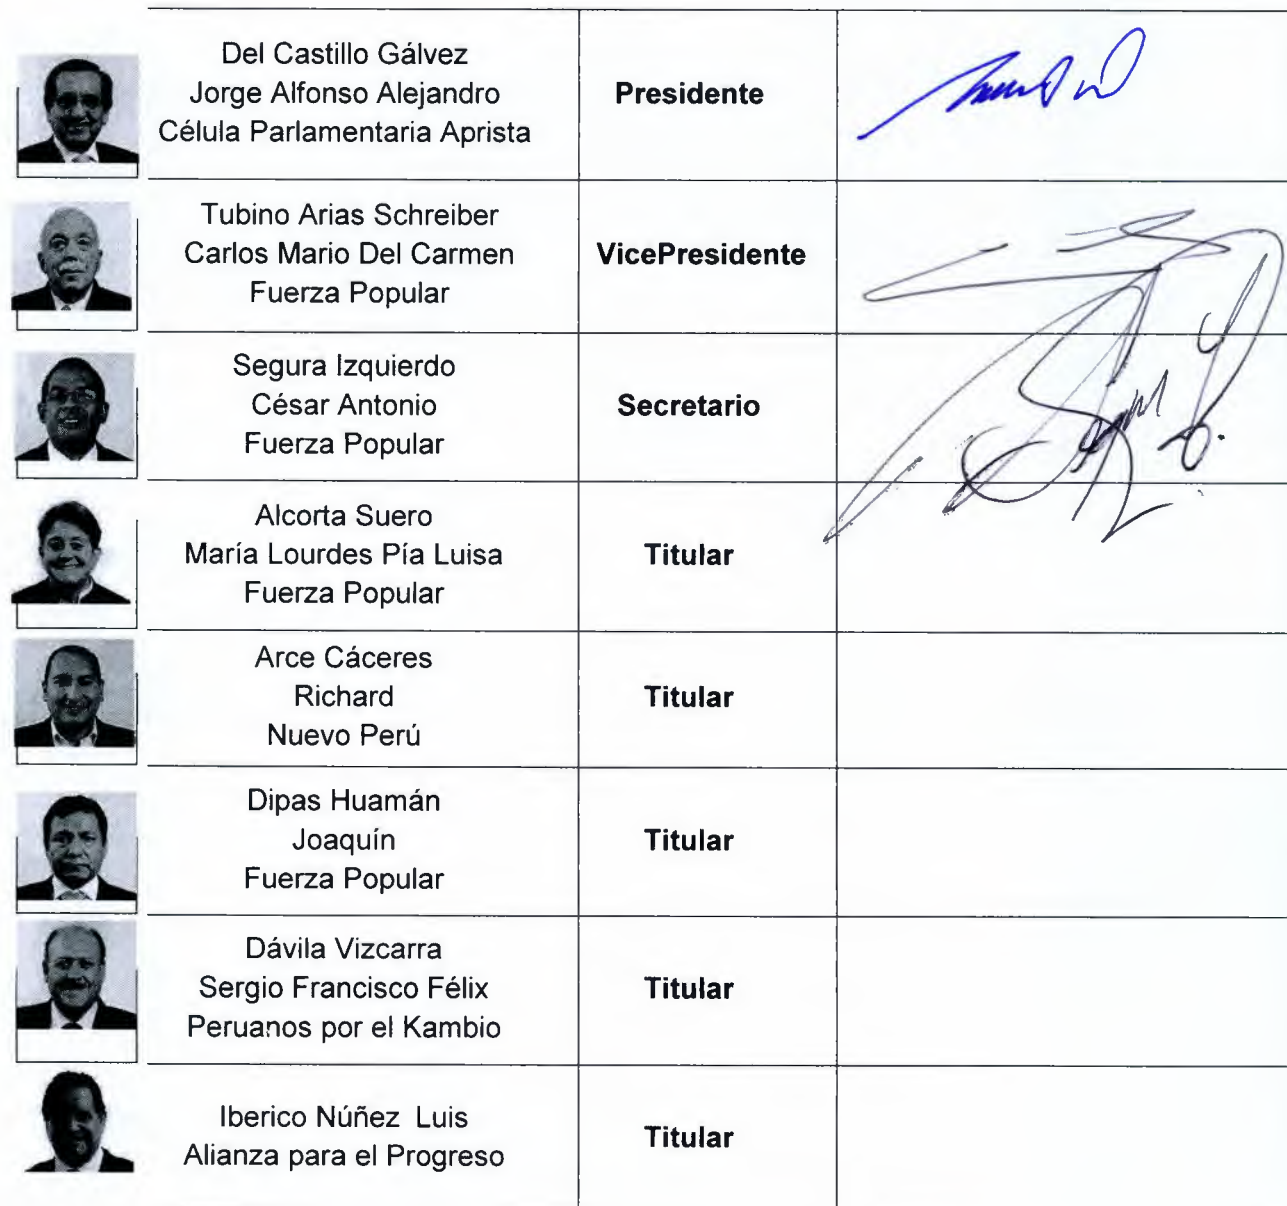 Del Castillo Gálvez
Jorge Alfonso Alejandro
Célula Parlamentaria Aprista
Presidente
Tubino Arias Schreiber
Carlos Mario Del Carmen
Fuerza Popular
VicePresidente
Segura Izquierdo
César Antonio
Fuerza Popular
Secretario
Alcorta Suero
María Lourdes Pía Luisa
Fuerza Popular
Titular
Arce Cáceres
Richard
Nuevo Perú
Titular
Dipas Huamán
Joaquín
Fuerza Popular
Titular
Dávila Vizcarra
Sergio Francisco Félix
Peruanos por el Kambio
Titular
Iberico Núñez Luis
Alianza para el Progreso
Titular